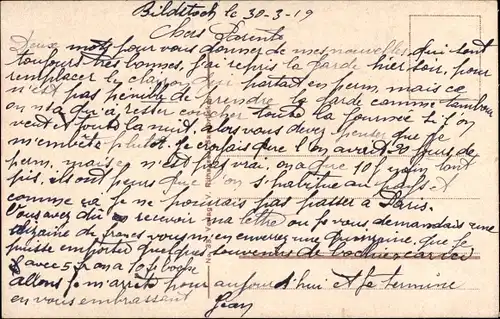 Bildstock le 30-3-19
Chers Parents
Deux mots pour vous donner de mes nouvelles qui sont
toujours très bonnes, j'ai repris la garde hier soir, pour
remplacer le clairon qui partait en perm, mais ce
n'est pas pénible de prendre la garde comme tambour
on n'a qu'à rester coucher toute la journée si l'on
veut et toute la nuit alors vous devez penser que je
m'embête plutôt. Je croyais que l'on avait 20 jours de
perm, mais ce n'est pas vrai, on a que 10 j tant
pis, ils ont peur que l'on s'habitue au
comme ça je ne pourrais pas passer à Paris.
Vous avez dû recevoir ma lettre ou je vous demandais une
dizaine de francs vous m'en enverrez une quinzaine, que je
puisse emporter quelques souvenirs de boches car ici
avec 5 fr on a 10 f boche
allons je m'arrête pour aujourd'hui et je termine
en vous embrassant Jean